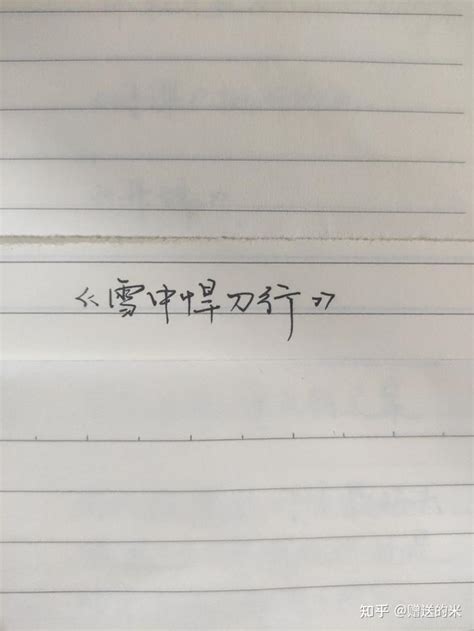 《雪中悍刀行》
知乎 @赠送的米